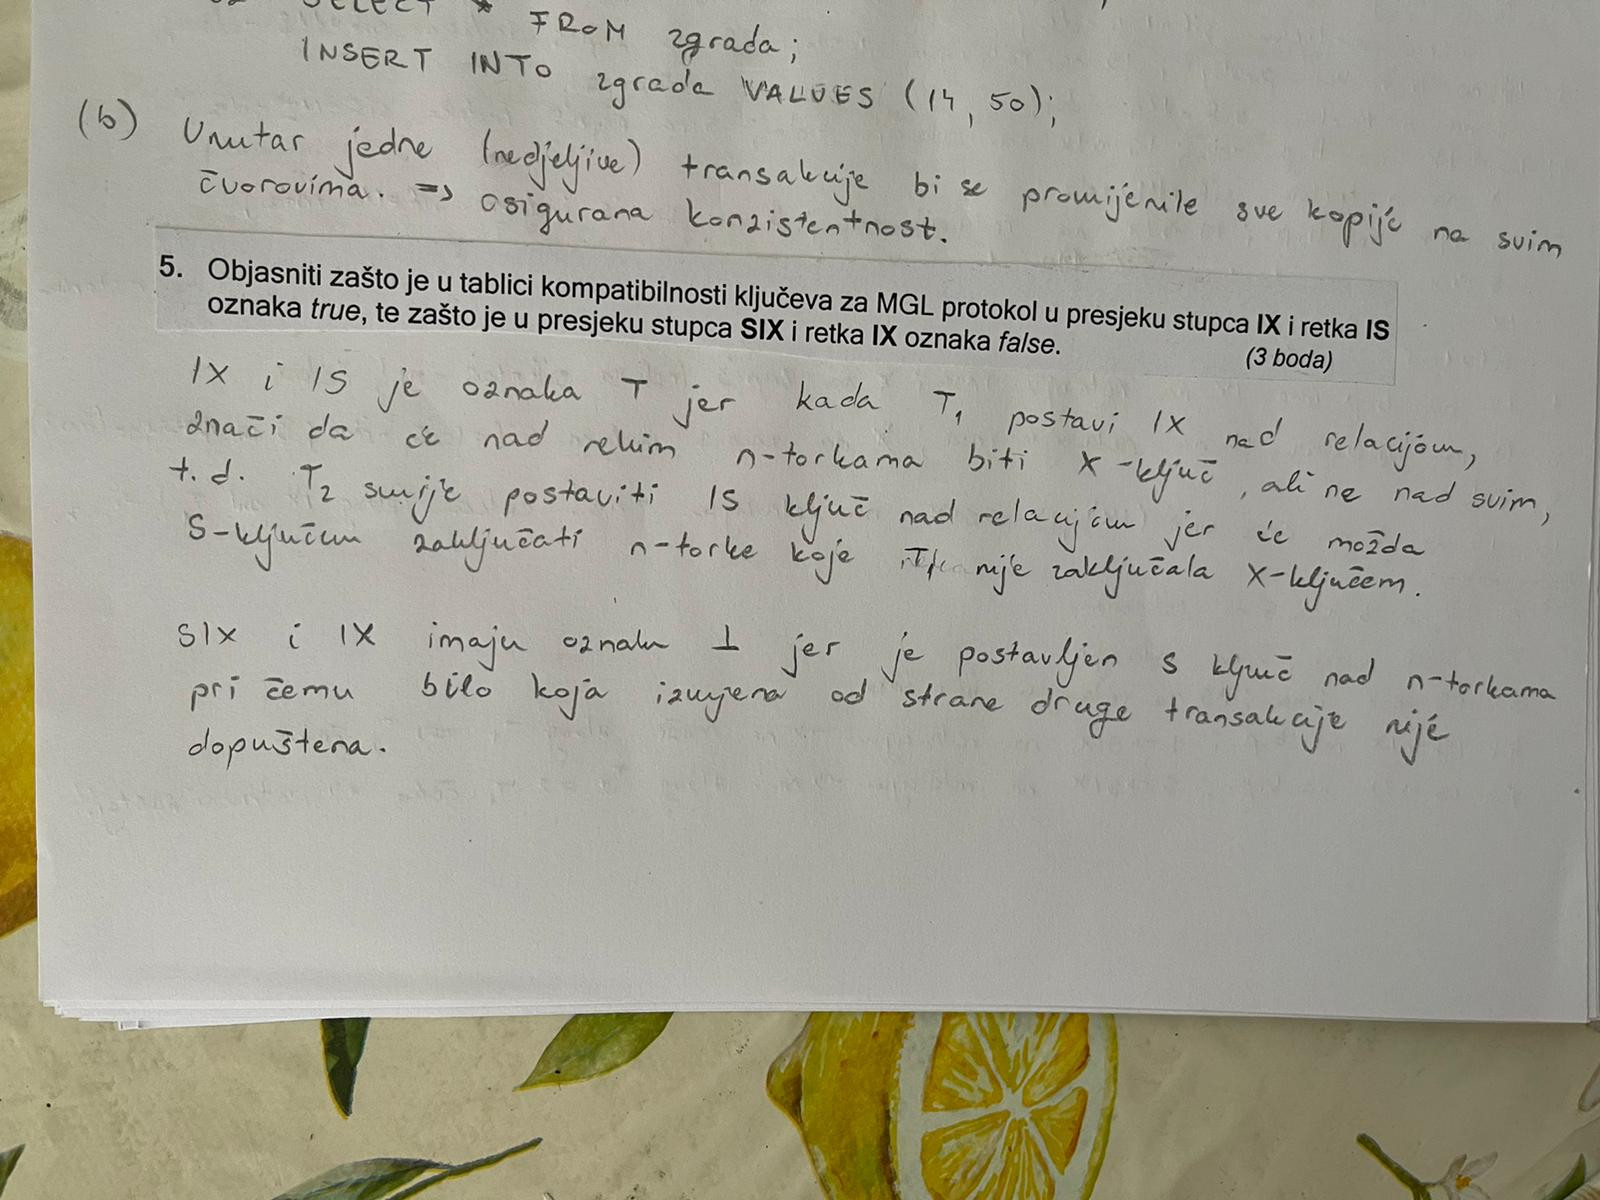 SELECT * FROM zgrada;
INSERT INTO zgrada VALUES (14, 50);
(b) Unutar jedne (nedjeljive) transakcije bi se promijenile sve kopije na svim
čvorovima. => osigurana konzistentnost.
5. Objasniti zašto je u tablici kompatibilnosti ključeva za MGL protokol u presjeku stupca IX i retka IS
oznaka true, te zašto je u presjeku stupca SIX i retka IX oznaka false.
(3 boda)
IX i IS je oznaka T jer kada T₁ postavi IX nad relacijom,
znači da će nad nekim n-torkama biti X-ključ, ali ne nad svim,
t.d. T₂ smije postaviti IS ključ nad relacijom jer će možda
S-ključem zaključati n-torke koje T₁ nije zaključala X-ključem.
SIX i IX imaju oznaku ⊥ jer je postavljen S ključ nad n-torkama
pri čemu bilo koja izmjena od strane druge transakcije nije
dopuštena.